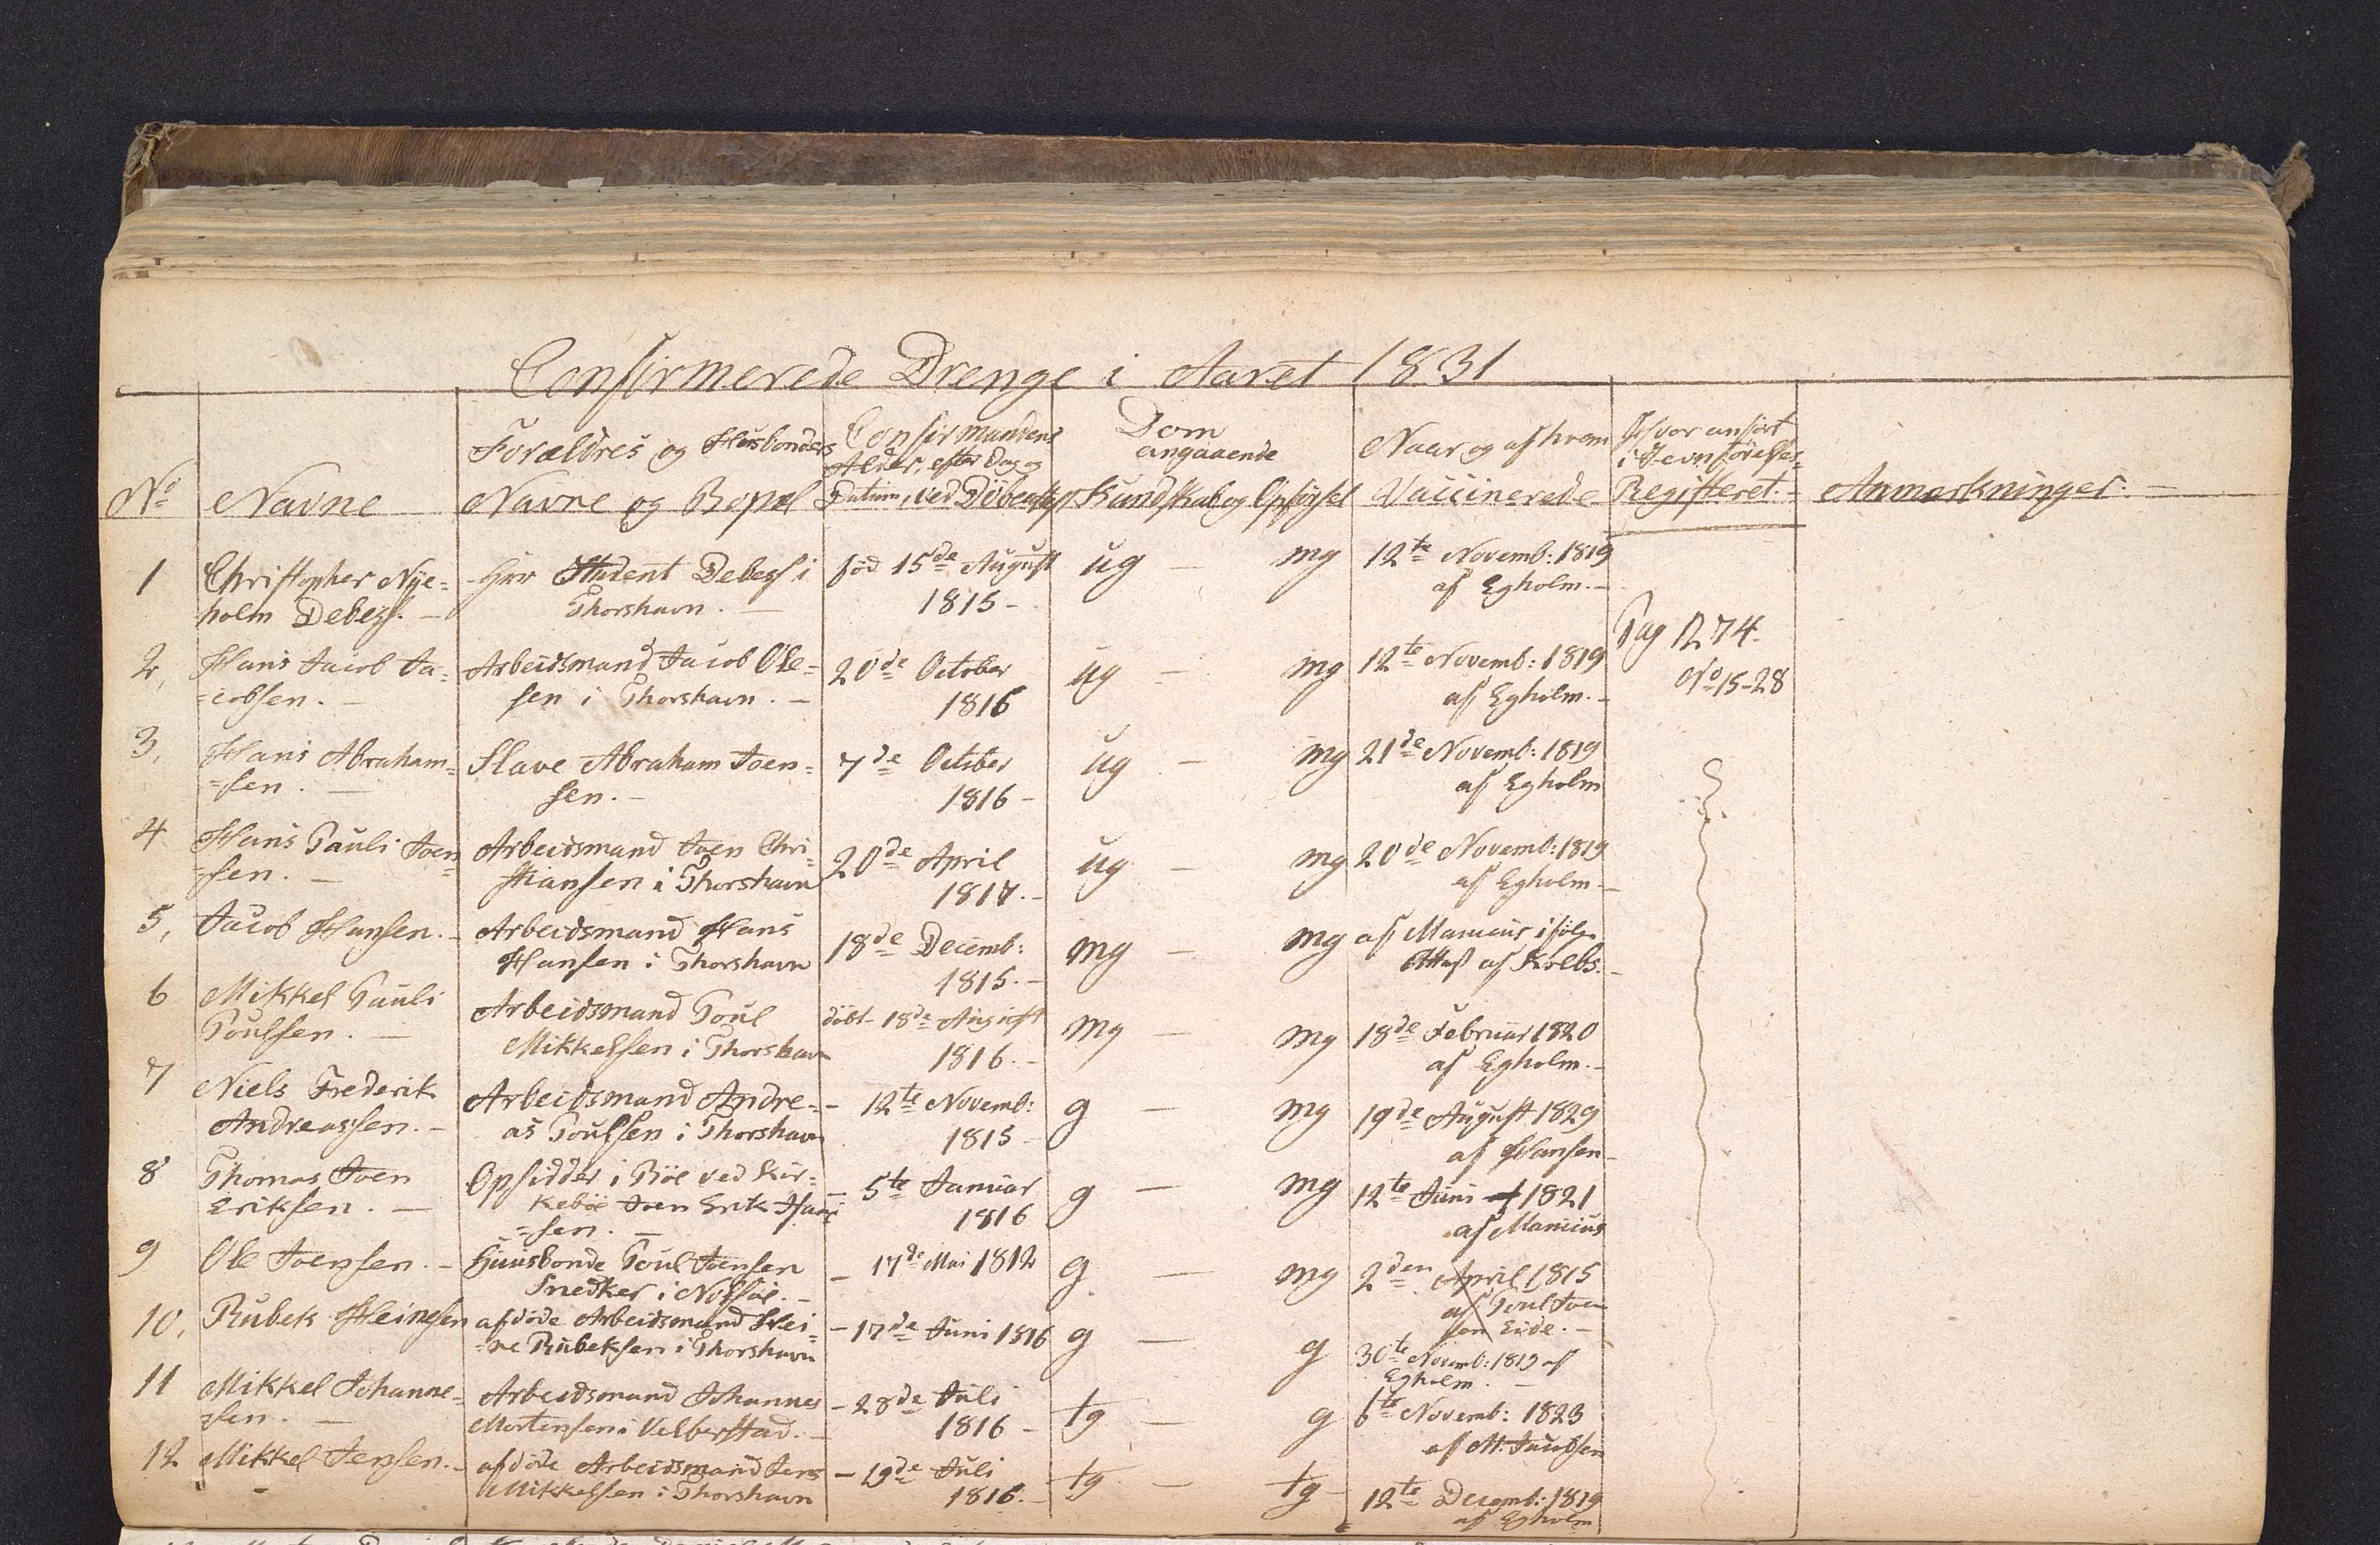 Confirmerede Drenge i Aaret 1831
No Navne
Forældres og Husbonders
Navne og Bopæl
Confirmandens
Alder, efter Dag og
Datum, ved Döbeattest
Dom
angaaende
Kundskab og Opförsel
Naar og af hvem
Vaccinerede
Hvor anfört
i Jevnförelses-
Registeret.-
Anmerkninger.-
1
Christopher Nye=
holm Debess.-
Hrr Student Debess i
Thorshavn.-
föd 15de August
1815-
ug - mg
12te Novemb: 1819
af Egholm.-
Pag 274.
No 15-28
2,
Hans Jacob Ja=
=cobsen.-
Arbeidsmand Jacob Ole=
sen i Thorshavn.-
20de October
1816
ug - mg
12te Novemb: 1819
af Egholm.-
3,
Hans Abraham=
=sen.-
Slave Abraham Joen=
sen.-
7de October
1816-
ug - mg
21de Novemb: 1819
af Egholm
4
Hans Pauli Joen=
=sen.-
Arbeidsmand Joen Chri=
stiansen i Thorshavn
20de April
1817.-
ug - mg
20de Novemb: 1819
af Egholm-
5,
Jacob Hansen.-
Arbeidsmand Hans
Hansen i Thorshavn
18de Decemb:
1815.-
mg - mg
af Manicus ifölge
Attest af Krebs.-
6
Mikkel Pauli
Poulsen.-
Arbeidsmand Poul
Mikkelsen i Thorshavn
döbt 18de August
1816.-
mg - mg
18de Februar 1820
af Egholm.-
7
Niels Frederik
Andreassen.-
Arbeidsmand Andre=
as Poulsen i Thorshavn
- 12te Novemb:
1815-
g - mg
19de August 1829
af Hansen-
8
Thomas Joen
Eriksen.-
Opsidder i Böe ved Kir=
keböe Joen Erik
=sen.-
- 5te Januar
1816
g - mg
12te Juni 1821
af Manicus
9
Ole Joensen.-
Huusbonde Poul Joensen
Snedker i Nolsöe.-
- 17de Mai 1812
g - mg
2den April 1815
af Poul Joen
sen Eide.-
10,
Rubek Heinesen
afdöde Arbeidsmand Hei=
=ne Rubeksen i Thorshavn
- 17de Juni 1816
g - g
30te Novemb: 1819 af
Egholm.-
11
Mikkel Johanne=
=sen.-
Arbeidsmand Johannes
Mortensen i Velberstad.-
- 28de Juli
1816-
tg - g
6te Novemb: 1823
af M. Jacobsen
12
Mikkel Jensen.-
afdöde Arbeidsmand Jens
Mikkelsen i Thorshavn
- 19de Juli
1816.-
tg - tg
12te Decemb: 1819
af Egholm